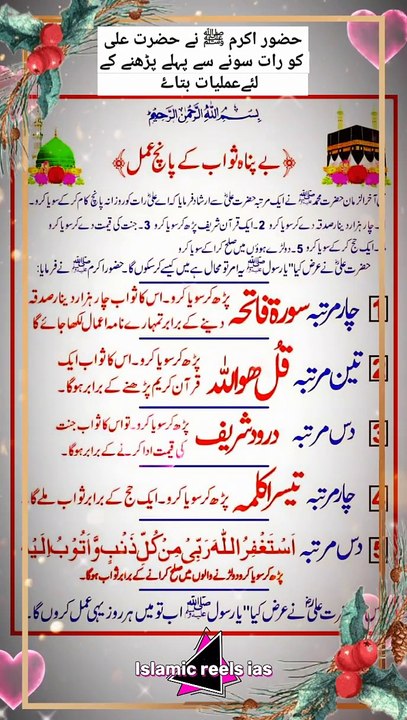 حضور اکرم ﷺ نے حضرت علی
کو رات سونے سے پہلے پڑھنے کے
لئے عملیات بتائے
بِسْمِ اللّٰهِ الرَّحْمٰنِ الرَّحِيْمِ
﴿بے پناہ ثواب کے پانچ عمل﴾
آخر الزمان حضرت محمد ﷺ نے ایک مرتبہ حضرت علیؓ سے ارشاد فرمایا کہ اے علیؓ رات کو روزانہ پانچ کام کر کے سویا کرو۔
چار ہزار دینار صدقہ دے کر سویا کرو 2۔ ایک قرآن شریف پڑھ کر سویا کرو 3۔ جنت کی قیمت دے کر سویا کرو
۔ ایک حج کر کے سویا کرو 5۔ دو لڑے ہوؤں میں صلح کرا کے سویا کرو
حضرت علیؓ نے عرض کیا "یا رسول اللہ ﷺ یہ امر تو محال ہے میں کیسے کر سکوں گا۔ حضور اکرم ﷺ نے فرمایا:
1 چار مرتبہ سورۃ فاتحہ پڑھ کر سویا کرو۔ اس کا ثواب چار ہزار دینار صدقہ
دینے کے برابر تمہارے نامہ اعمال لکھا جائے گا
2 تین مرتبہ قُل ھو اللہ پڑھ کر سویا کرو۔ اس کا ثواب ایک
قرآن کریم پڑھنے کے برابر ہوگا۔
3 دس مرتبہ درود شریف پڑھ کر سویا کرو۔ تو اس کا ثواب جنت
کی قیمت ادا کرنے کے برابر ہوگا۔
4 چار مرتبہ تیسرا کلمہ پڑھ کر سویا کرو۔ ایک حج کے برابر ثواب ملے گا
5 دس مرتبہ اَسْتَغْفِرُ اللّٰهَ رَبِّیْ مِنْ كُلِّ ذَنْۢبٍ وَّاَتُوْبُ اِلَیْهِ
پڑھ کر سویا کرو دو لڑنے والوں میں صلح کرانے کے برابر ثواب ہوگا۔
حضرت علیؓ نے عرض کیا "یا رسول اللہ ﷺ اب تو میں ہر روز یہی عمل کروں گا۔
Islamic reels ias